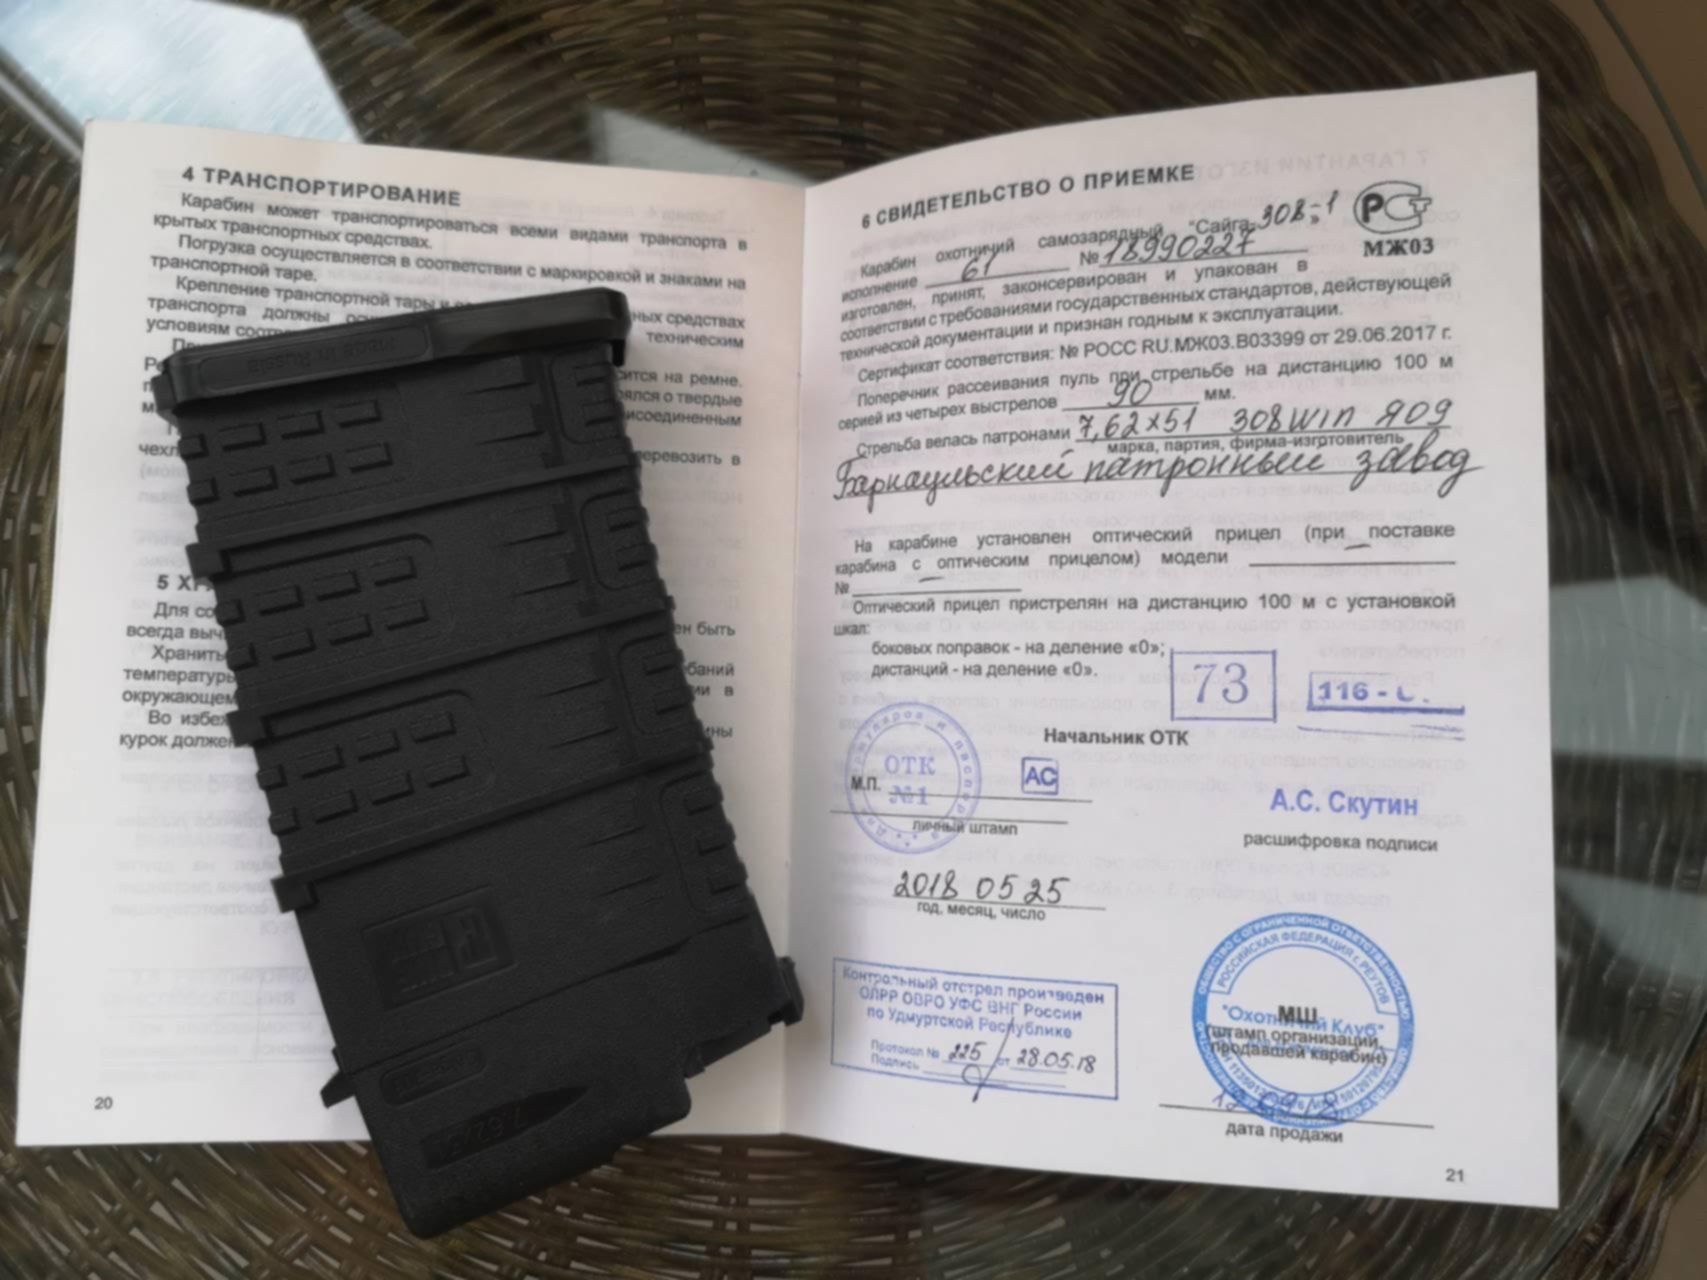 4 ТРАНСПОРТИРОВАНИЕ
Карабин может транспортироваться всеми видами транспорта в
крытых транспортных средствах.
Погрузка осуществляется в соответствии с маркировкой и знаками на
транспортной таре.
Крепление транспортной тары и
транспорта должны ных средствах
условиям техническим
сится на ремне.
о твердые
рисоединенным
чехл перевозить в
5
Для со
всегда ен быть
Хранить баний
температуры и в
окружающем
Во избеж ины
курок должен
20
Made in Russia
7,62
6 СВИДЕТЕЛЬСТВО О ПРИЕМКЕ
Карабин охотничий самозарядный "Сайга-308-1"
РСТ
МЖ03
исполнение 61 № 18990227
изготовлен, принят, законсервирован и упакован в
соответствии с требованиями государственных стандартов, действующей
технической документации и признан годным к эксплуатации.
Сертификат соответствия: № РОСС RU.МЖ03.В03399 от 29.06.2017 г.
Поперечник рассеивания пуль при стрельбе на дистанцию 100 м
серией из четырех выстрелов 90 мм.
Стрельба велась патронами 7,62x51 308WIN Я09
марка, партия, фирма-изготовитель
Барнаульский патронный завод
На карабине установлен оптический прицел (при поставке
карабина с оптическим прицелом) модели
№
Оптический прицел пристрелян на дистанцию 100 м с установкой
шкал:
боковых поправок - на деление «0»;
дистанций - на деление «0».
73
116 -
Начальник ОТК
ОТК
№1
М.П.
АС
личный штамп
А.С. Скутин
расшифровка подписи
2018 05 25
год, месяц, число
Контрольный отстрел произведен
ОЛРР ОВРО УФС ВНГ России
по Удмуртской Республике
Протокол № 225 от 28.05.18
Подпись
ОБЩЕСТВО С ОГРАНИЧЕННОЙ ОТВЕТСТВЕННОСТЬЮ
РОССИЙСКАЯ ФЕДЕРАЦИЯ г. РЕУТОВ
"Охотничий Клуб"
МШ
(штамп организации,
продавшей карабин)
дата продажи
21